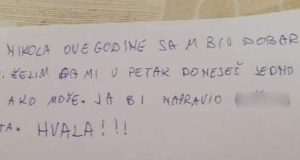 NIKOLA OVE GODINE SAM BIO DOBAR
. ŽELIM DA MI U PETAK DONESEŠ JEDNO
AKO MOŽE. JA BI NAPRAVIO
TA. HVALA!!!